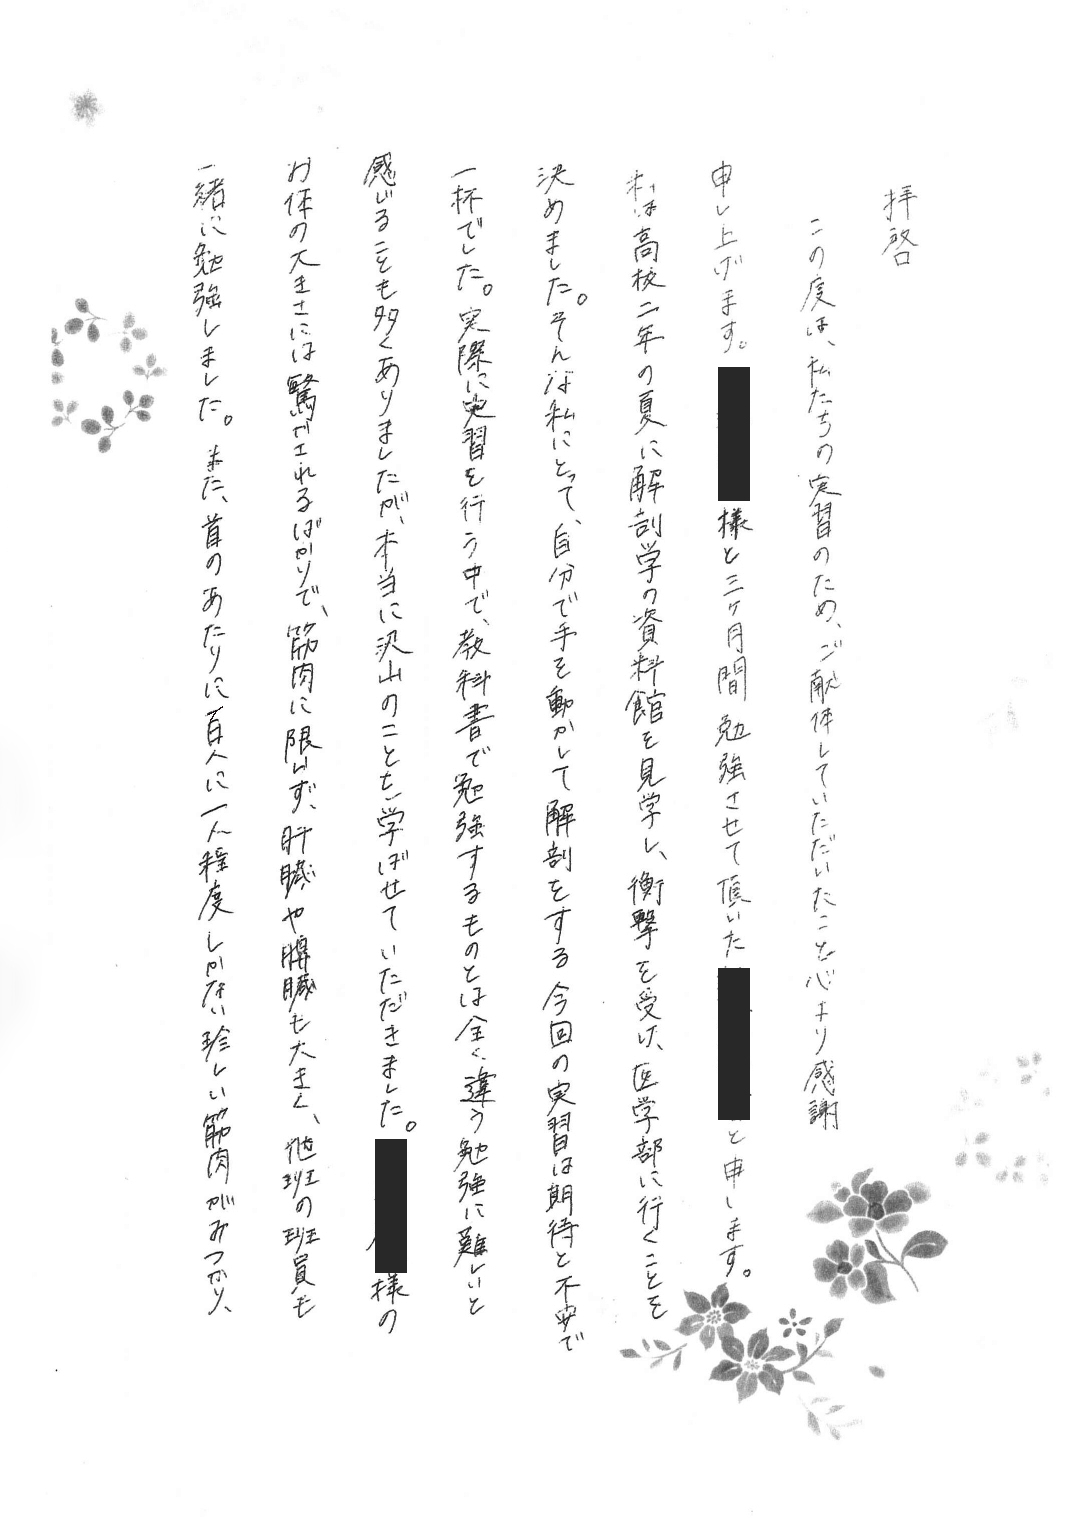 拝啓
この度は、私たちの実習のため、ご献体していただいたこと心より感謝
申し上げます。様と三ヶ月間勉強させて頂いたと申します。
私は高校二年の夏に解剖学の資料館を見学し、衝撃を受け、医学部に行くことを
決めました。そんな私にとって、自分で手を動かして解剖をする今回の実習は期待と不安で
一杯でした。実際に実習を行う中で、教科書で勉強するものとは全く違う勉強に難しいと
感じることも多くありましたが、本当に沢山のことを学ばせていただきました。様の
お体の大きさには驚かされるばかりで、筋肉に限らず、肝臓や脾臓も大きく、他班の班員も
一緒に勉強しました。また、首のあたりに百人に一人程度しかない珍しい筋肉がみつかり、